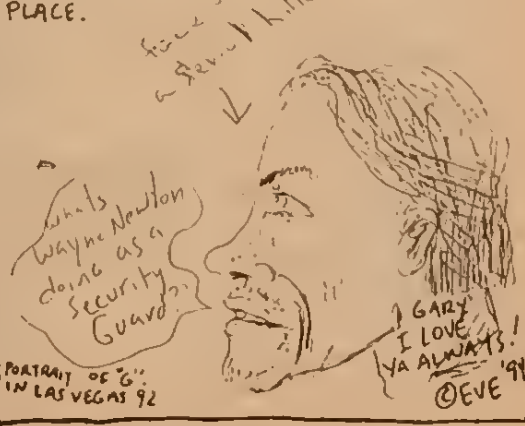 PLACE.
a
whats
Wayne Newton
doing as a
Security
Guard?!
PORTRAIT OF "G".
IN LAS VEGAS 92
GARY
I LOVE
YA ALWAYS!
'94
©EVE